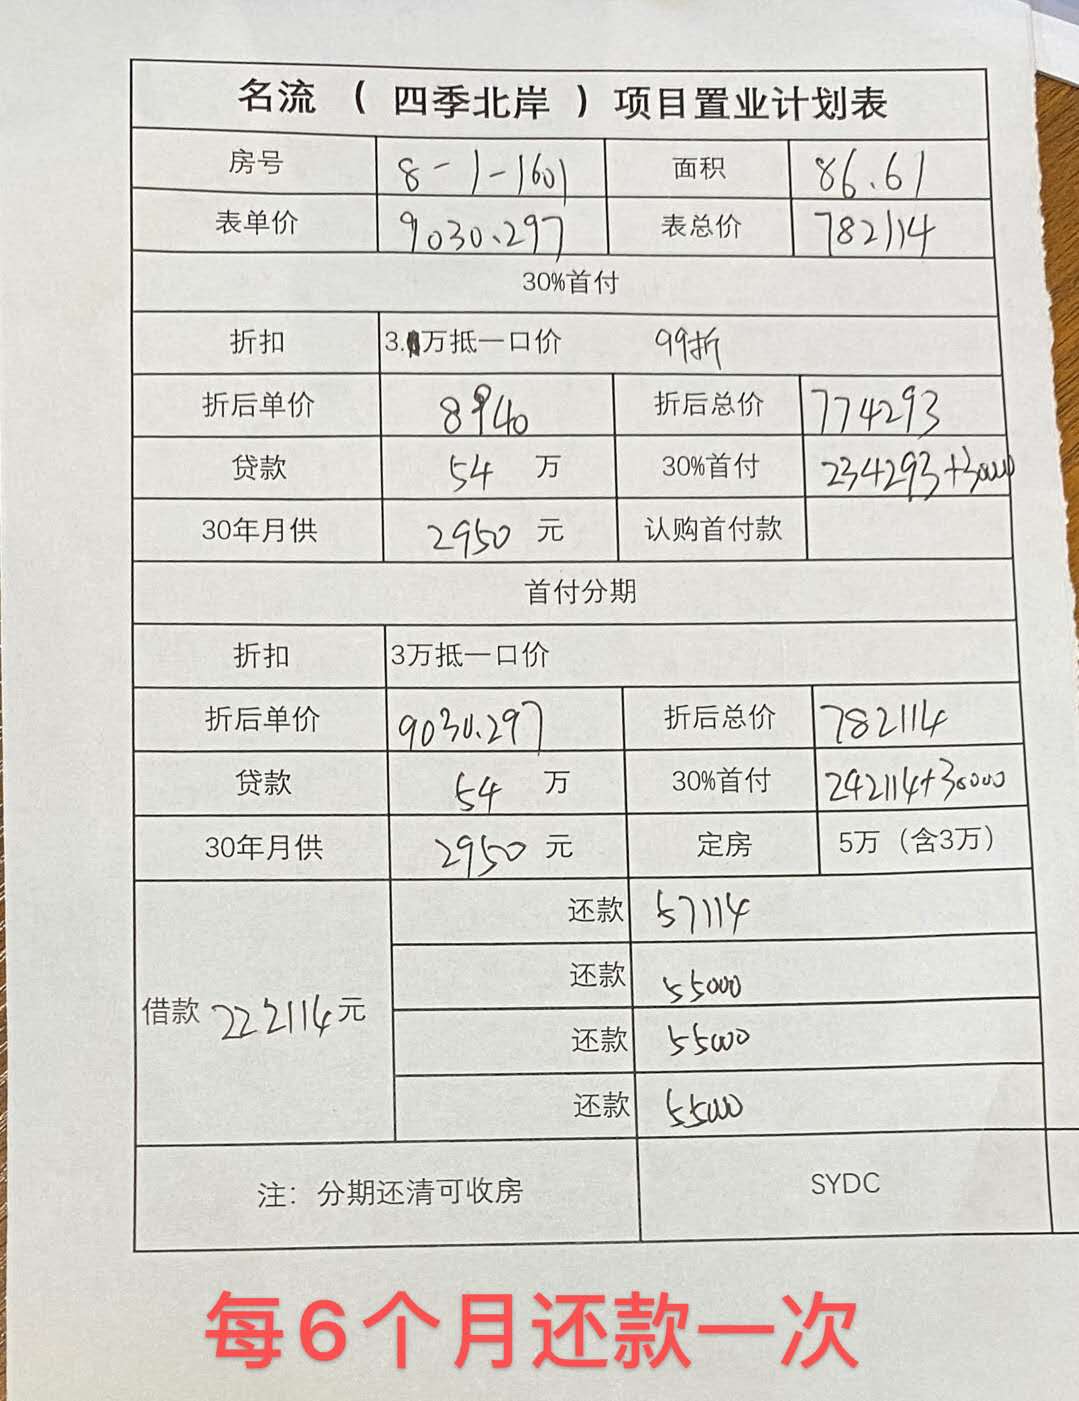 名流 （ 四季北岸 ）项目置业计划表
房号 8-1-1601 面积 86.61
表单价 9030.297 表总价 782114
30%首付
折扣 3.万抵一口价 99折
折后单价 8940 折后总价 774293
贷款 54 万 30%首付 234293+30000
30年月供 2950 元 认购首付款
首付分期
折扣 3万抵一口价
折后单价 9030.297 折后总价 782114
贷款 54 万 30%首付 242114+30000
30年月供 2950 元 定房 5万（含3万）
还款 57114
还款 55000
借款 222114元
还款 55000
还款 55000
注：分期还清可收房 SYDC
每6个月还款一次